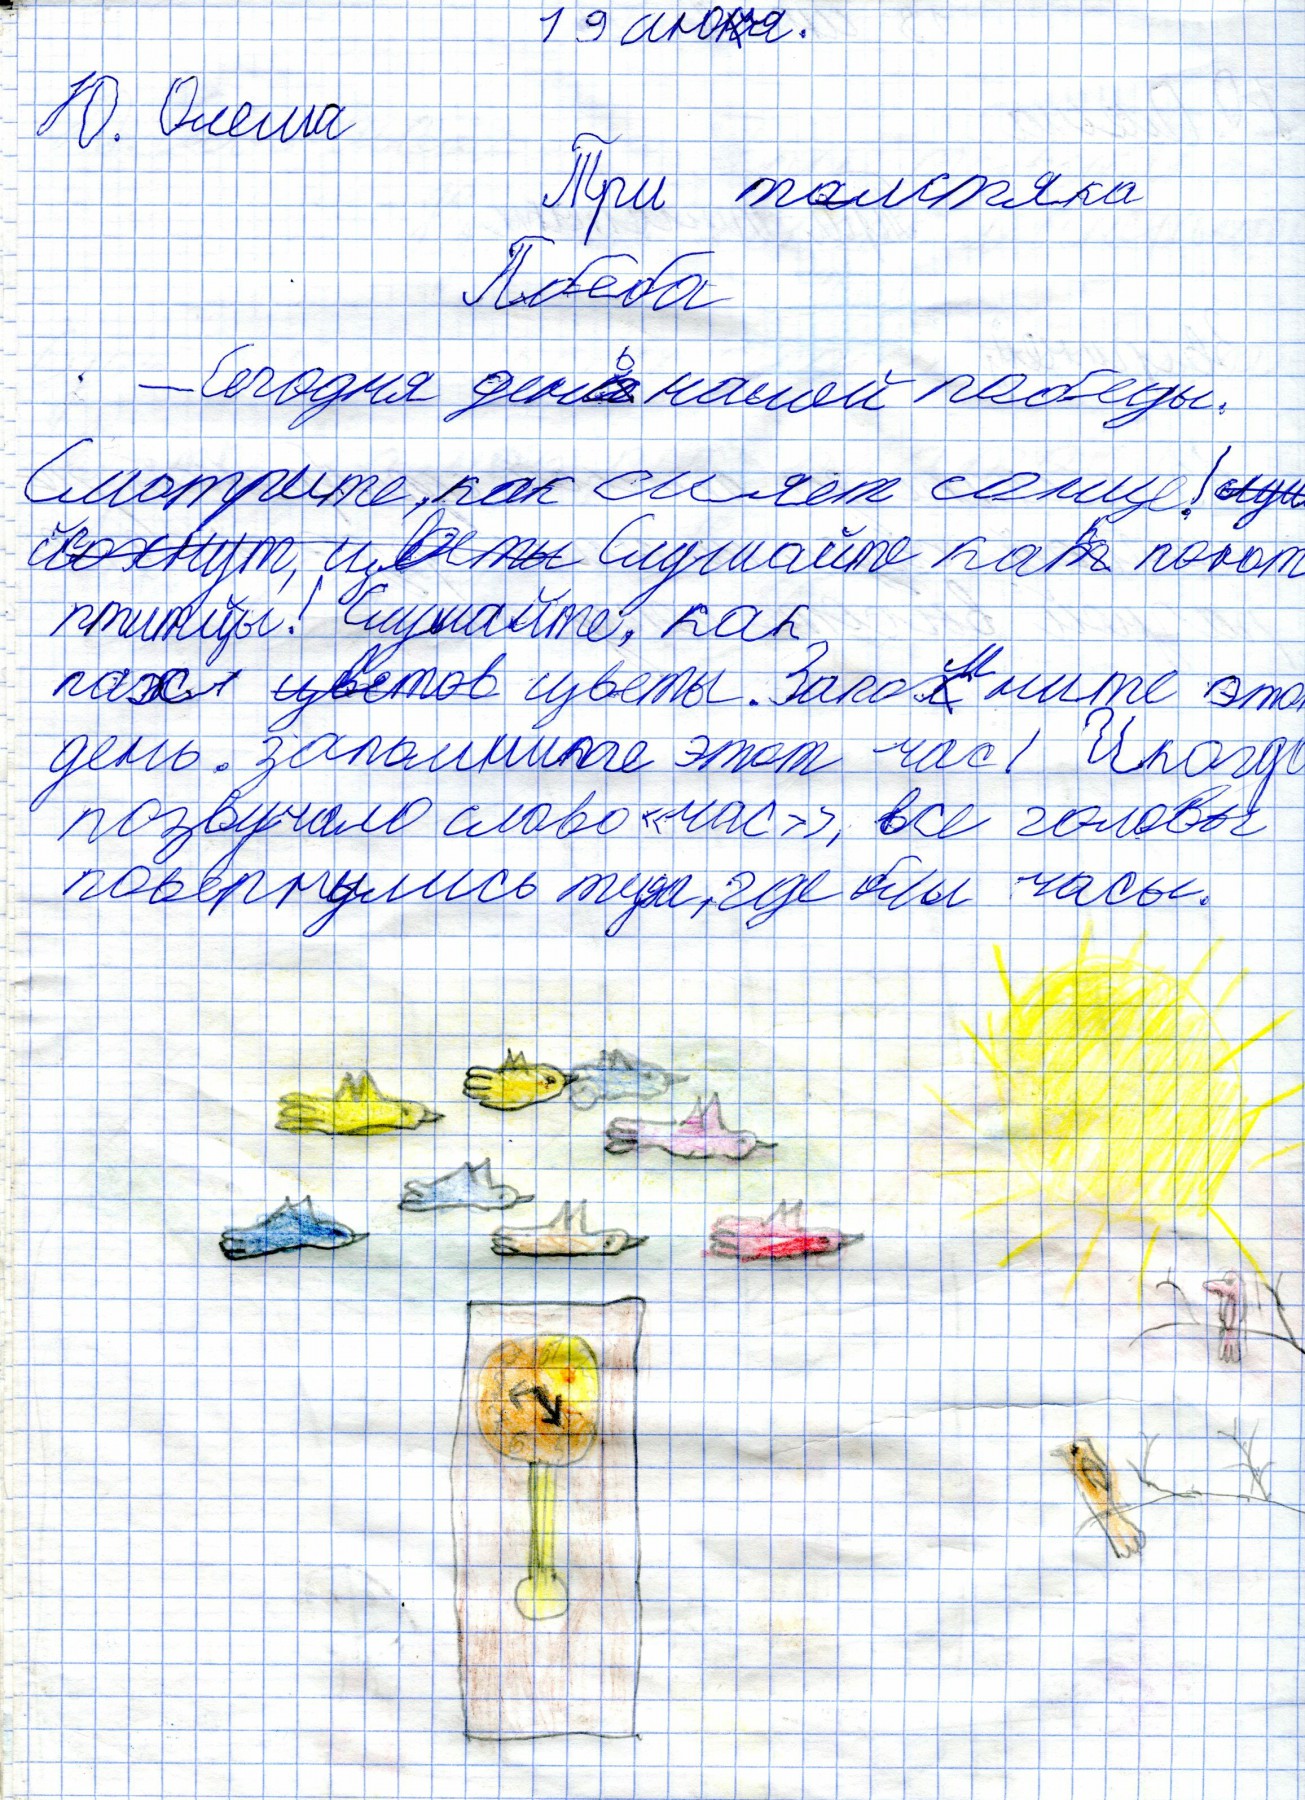 19 июня.
Ю. Олеша
Три толстяка
Победа
— Сегодня день нашой победы.
Смотрите, как сияет сонце!
Слушайте как поют
птитцы! Слушайте, как
цветы. Запомните этот
день. запомните этот час! И когда
прозвучало слово «час», все головы
повернулись туда, где бы часы.